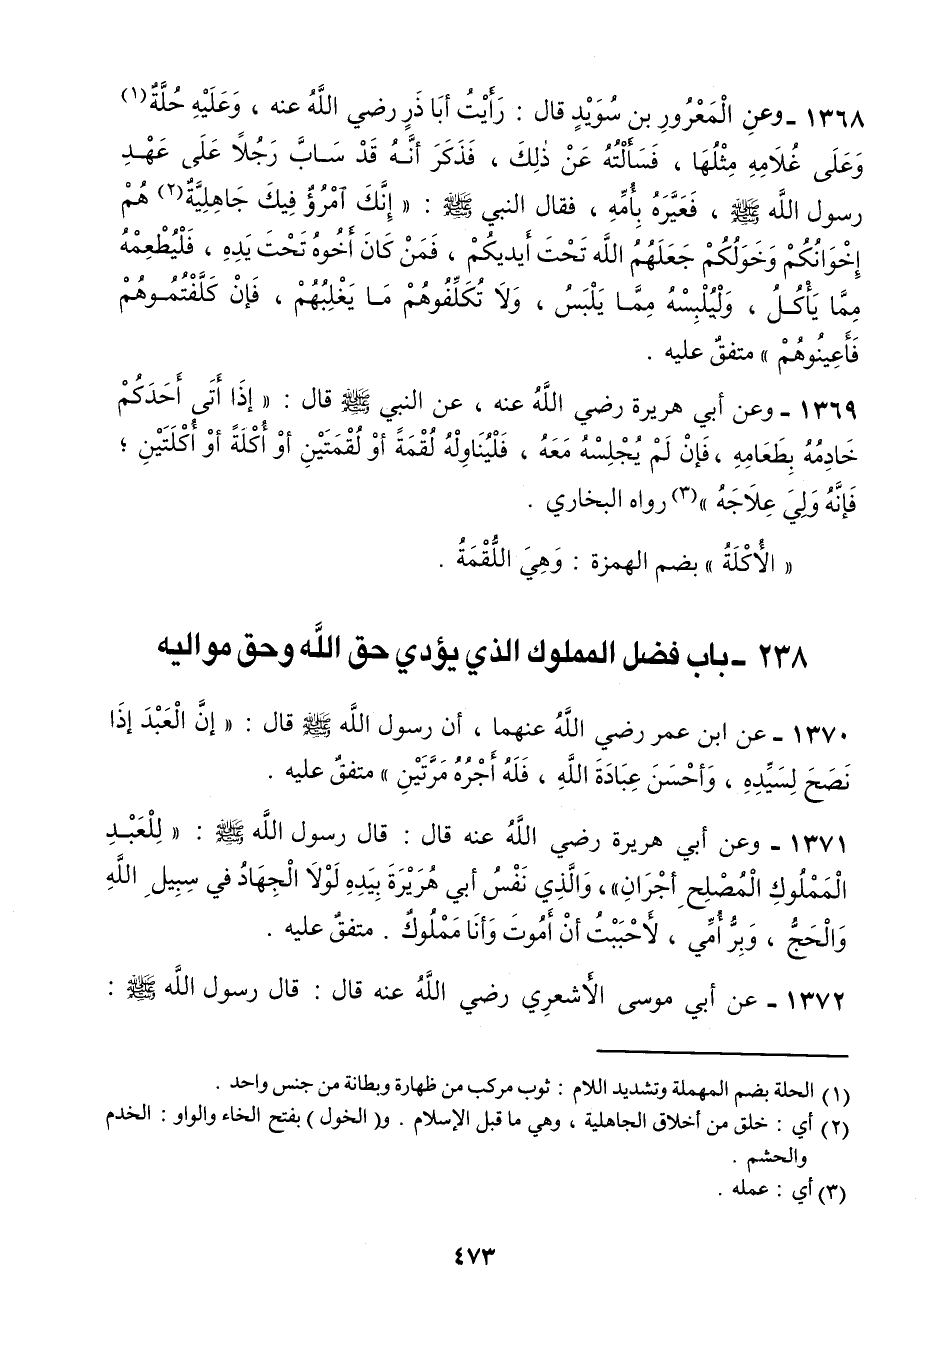 ١٣٦٨ ـ وعنِ الْمَعْرُورِ بن سُوَيْدٍ قال : رَأَيْتُ أبَا ذَرٍ رضي اللَّهُ عنه ، وَعَلَيْهِ حُلَّةٌ(١)
وَعَلَى غُلَامِهِ مِثْلُهَا ، فَسَأَلْتُهُ عَنْ ذٰلِكَ ، فَذَكَرَ أنَّهُ قَدْ سَابَّ رَجُلاً عَلَى عَهْدِ
رسول اللَّه ﷺ ، فَعَيَّرَهُ بِأُمِّهِ ، فقال النبي ﷺ : « إنَّكَ ٱمْرُؤٌ فِيكَ جَاهِلِيَّةٌ(٢) هُمْ
إخْوَانُكُمْ وَخَوَلُكُمْ جَعَلَهُمُ اللَّه تَحْتَ أيديكُمْ ، فَمَنْ كَانَ أخُوهُ تَحْتَ يَدِهِ ، فَلْيُطْعِمْهُ
مِمَّا يَأْكُلُ ، وَلْيُلْبِسْهُ مِمَّا يَلْبَسُ ، وَلَا تُكَلِّفُوهُمْ مَا يَغْلِبُهُمْ ، فَإنْ كَلَّفْتُمُوهُمْ
فَأَعِينُوهُمْ » متفقٌ عليه .
١٣٦٩ ـ وعن أبي هريرة رضي اللَّهُ عنه ، عن النبي ﷺ قال : « إذَا أَتَى أَحَدَكُمْ
خَادِمُهُ بِطَعَامِهِ ، فَإنْ لَمْ يُجْلِسْهُ مَعَهُ ، فَلْيُنَاوِلْهُ لُقْمَةً أوْ لُقْمَتَيْنِ أوْ أُكْلَةً أوْ أُكْلَتَيْنِ ؛
فَإنَّهُ وَلِيَ عِلَاجَهُ »(٣) رواه البخاري .
« الأُكْلَةُ » بضم الهمزة : وَهِيَ اللُّقْمَةُ .
٢٣٨ ـ باب فضل المملوك الذي يؤدي حق اللَّه وحق مواليه
١٣٧٠ ـ عن ابن عمر رضي اللَّهُ عنهما ، أن رسول اللَّه ﷺ قال : « إنَّ الْعَبْدَ إذَا
نَصَحَ لِسَيِّدِهِ ، وَأحْسَنَ عِبَادَةَ اللَّهِ ، فَلَهُ أَجْرُهُ مَرَّتَيْنِ » متفقٌ عليه .
١٣٧١ ـ وعن أبي هريرة رضي اللَّهُ عنه قال : قال رسول اللَّه ﷺ : « لِلْعَبْدِ
الْمَمْلُوكِ الْمُصْلِحِ أجْرَانِ» ، وَالَّذِي نَفْسُ أبي هُرَيْرَةَ بِيَدِهِ لَوْلَا الْجِهَادُ في سَبِيلِ اللَّهِ
وَالْحَجُّ ، وَبِرُّ أُمِّي ، لَأَحْبَبْتُ أنْ أَمُوتَ وَأنَا مَمْلُوكٌ . متفقٌ عليه .
١٣٧٢ ـ عن أبي موسى الأَشعرِي رضي اللَّهُ عنه قال : قال رسول اللَّه ﷺ :
(١) الحلة بضم المهملة وتشديد اللام : ثوب مركب من ظهارة وبطانة من جنس واحد .
(٢) أي : خلق من أخلاق الجاهلية ، وهي ما قبل الإسلام . و( الخول ) بفتح الخاء والواو : الخدم
والحشم .
(٣) أي : عمله .
٤٧٣